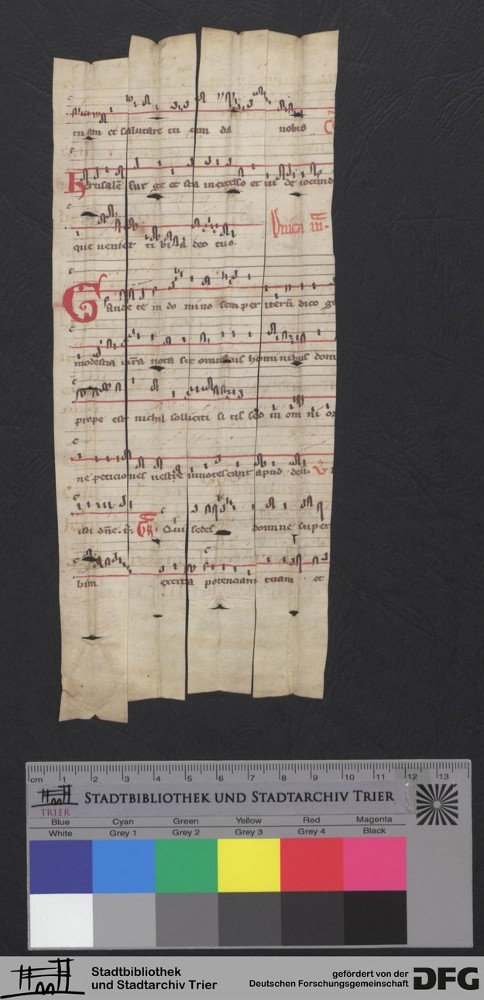 tuam et salutare tu um da nobis
Jerusalē sur ge et sta in excelso et vi de iocund
que veniet ti bi a deo tuo.
Gaude te in do mino semper iterū dico g
modestia vr̄a nota sit omnibus hominibus dom
prope est nichil solliciti si tis sed in om ni o
ne peticiones vestre innotescant apud deū. V
Qui sedes domine super
bim excita potenciam tuam et
cm 1 2 3 4 5 6 7 8 9 10 11 12 13
TRIER
STADTBIBLIOTHEK UND STADTARCHIV TRIER
Blue Cyan Green Yellow Red Magenta
White Grey 1 Grey 2 Grey 3 Grey 4 Black
Stadtbibliothek
und Stadtarchiv Trier
gefördert von der
Deutschen Forschungsgemeinschaft
DFG